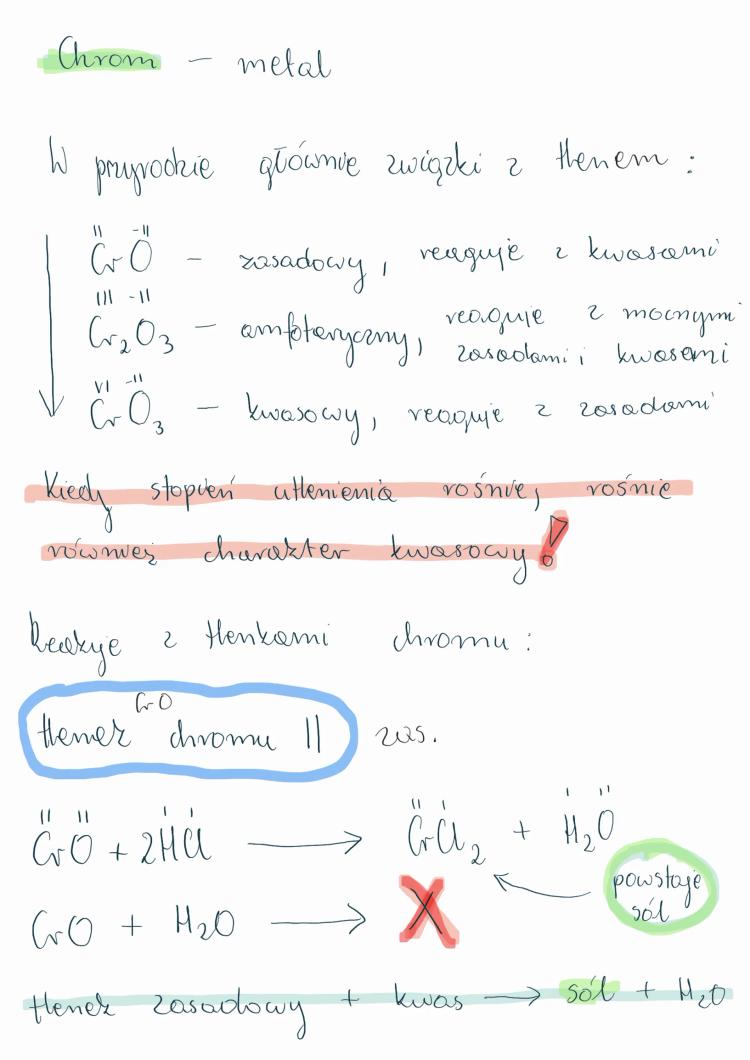 Chrom – metal
W przyrodzie głównie związki z tlenem:
II -II
CrO – zasadowy, reaguje z kwasami
III -II
Cr₂O₃ – amfoteryczny, reaguje z mocnymi
zasadami i kwasami
VI -II
CrO₃ – kwasowy, reaguje z zasadami
Kiedy stopień utlenienia rośnie, rośnie
również charakter kwasowy!
Reakcje z tlenkami chromu:
CrO
tlenek chromu II zas.
II II I I II I I II
CrO + 2HCl → CrCl₂ + H₂O
powstaje
sól
CrO + H₂O → X
tlenek zasadowy + kwas → sól + H₂O